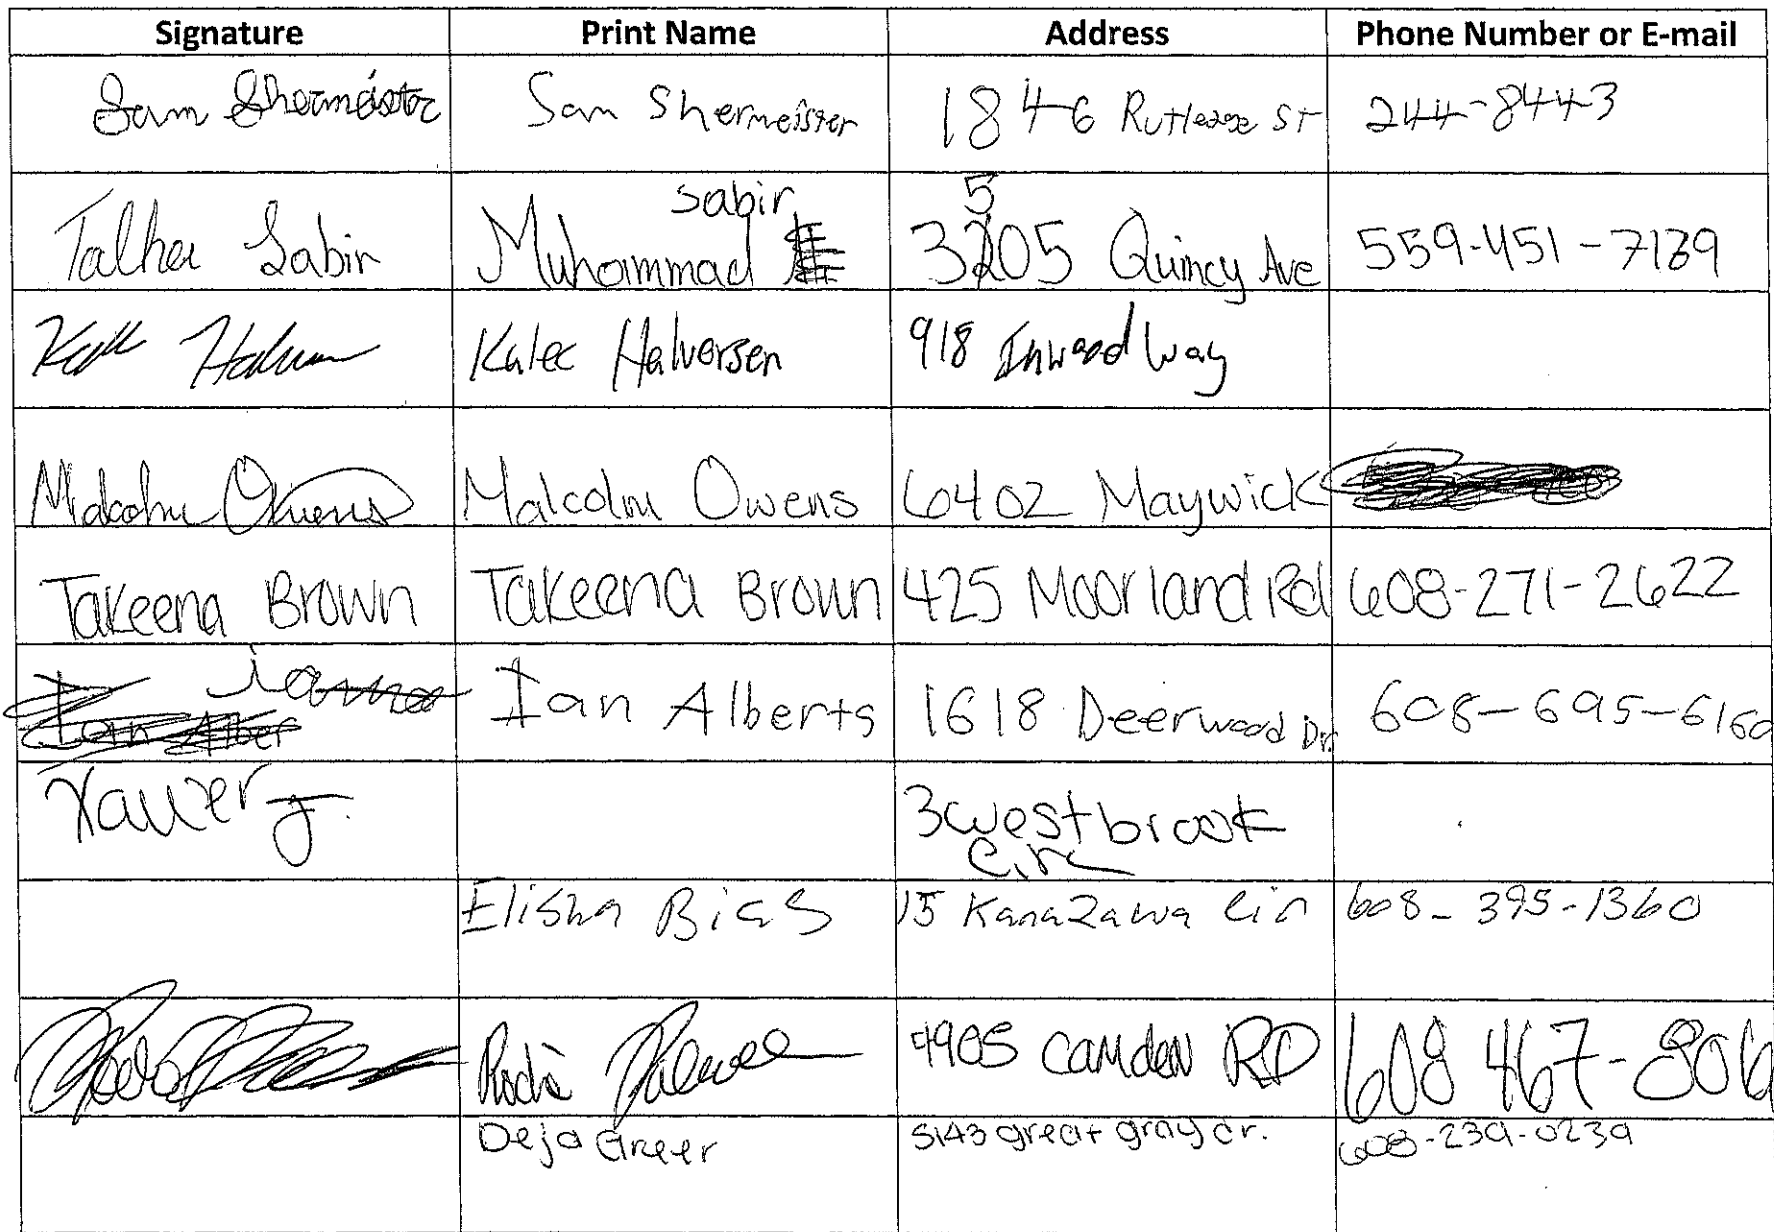 Signature Print Name Address Phone Number or E-mail
Sam Shermeister Sam Shermeister 1846 Rutledge St 244-8443
Talha Sabir Muhammad Sabir 3505 Quincy Ave 559-451-7139
Kalec Halversen 918 Inwood Way
Malcolm Owens Malcolm Owens 6402 Maywick
Takeena Brown Takeena Brown 425 Moorland Rd 608-271-2622
Ian Alberts 1618 Deerwood Dr. 608-695-6160
Xavier J. 3 westbrook
Cir
Elisha Bias 15 Kanazawa Cir 608-395-1360
4905 Camden RD 608 467-806
Deja Greer 5143 great gray dr. 608-239-0239